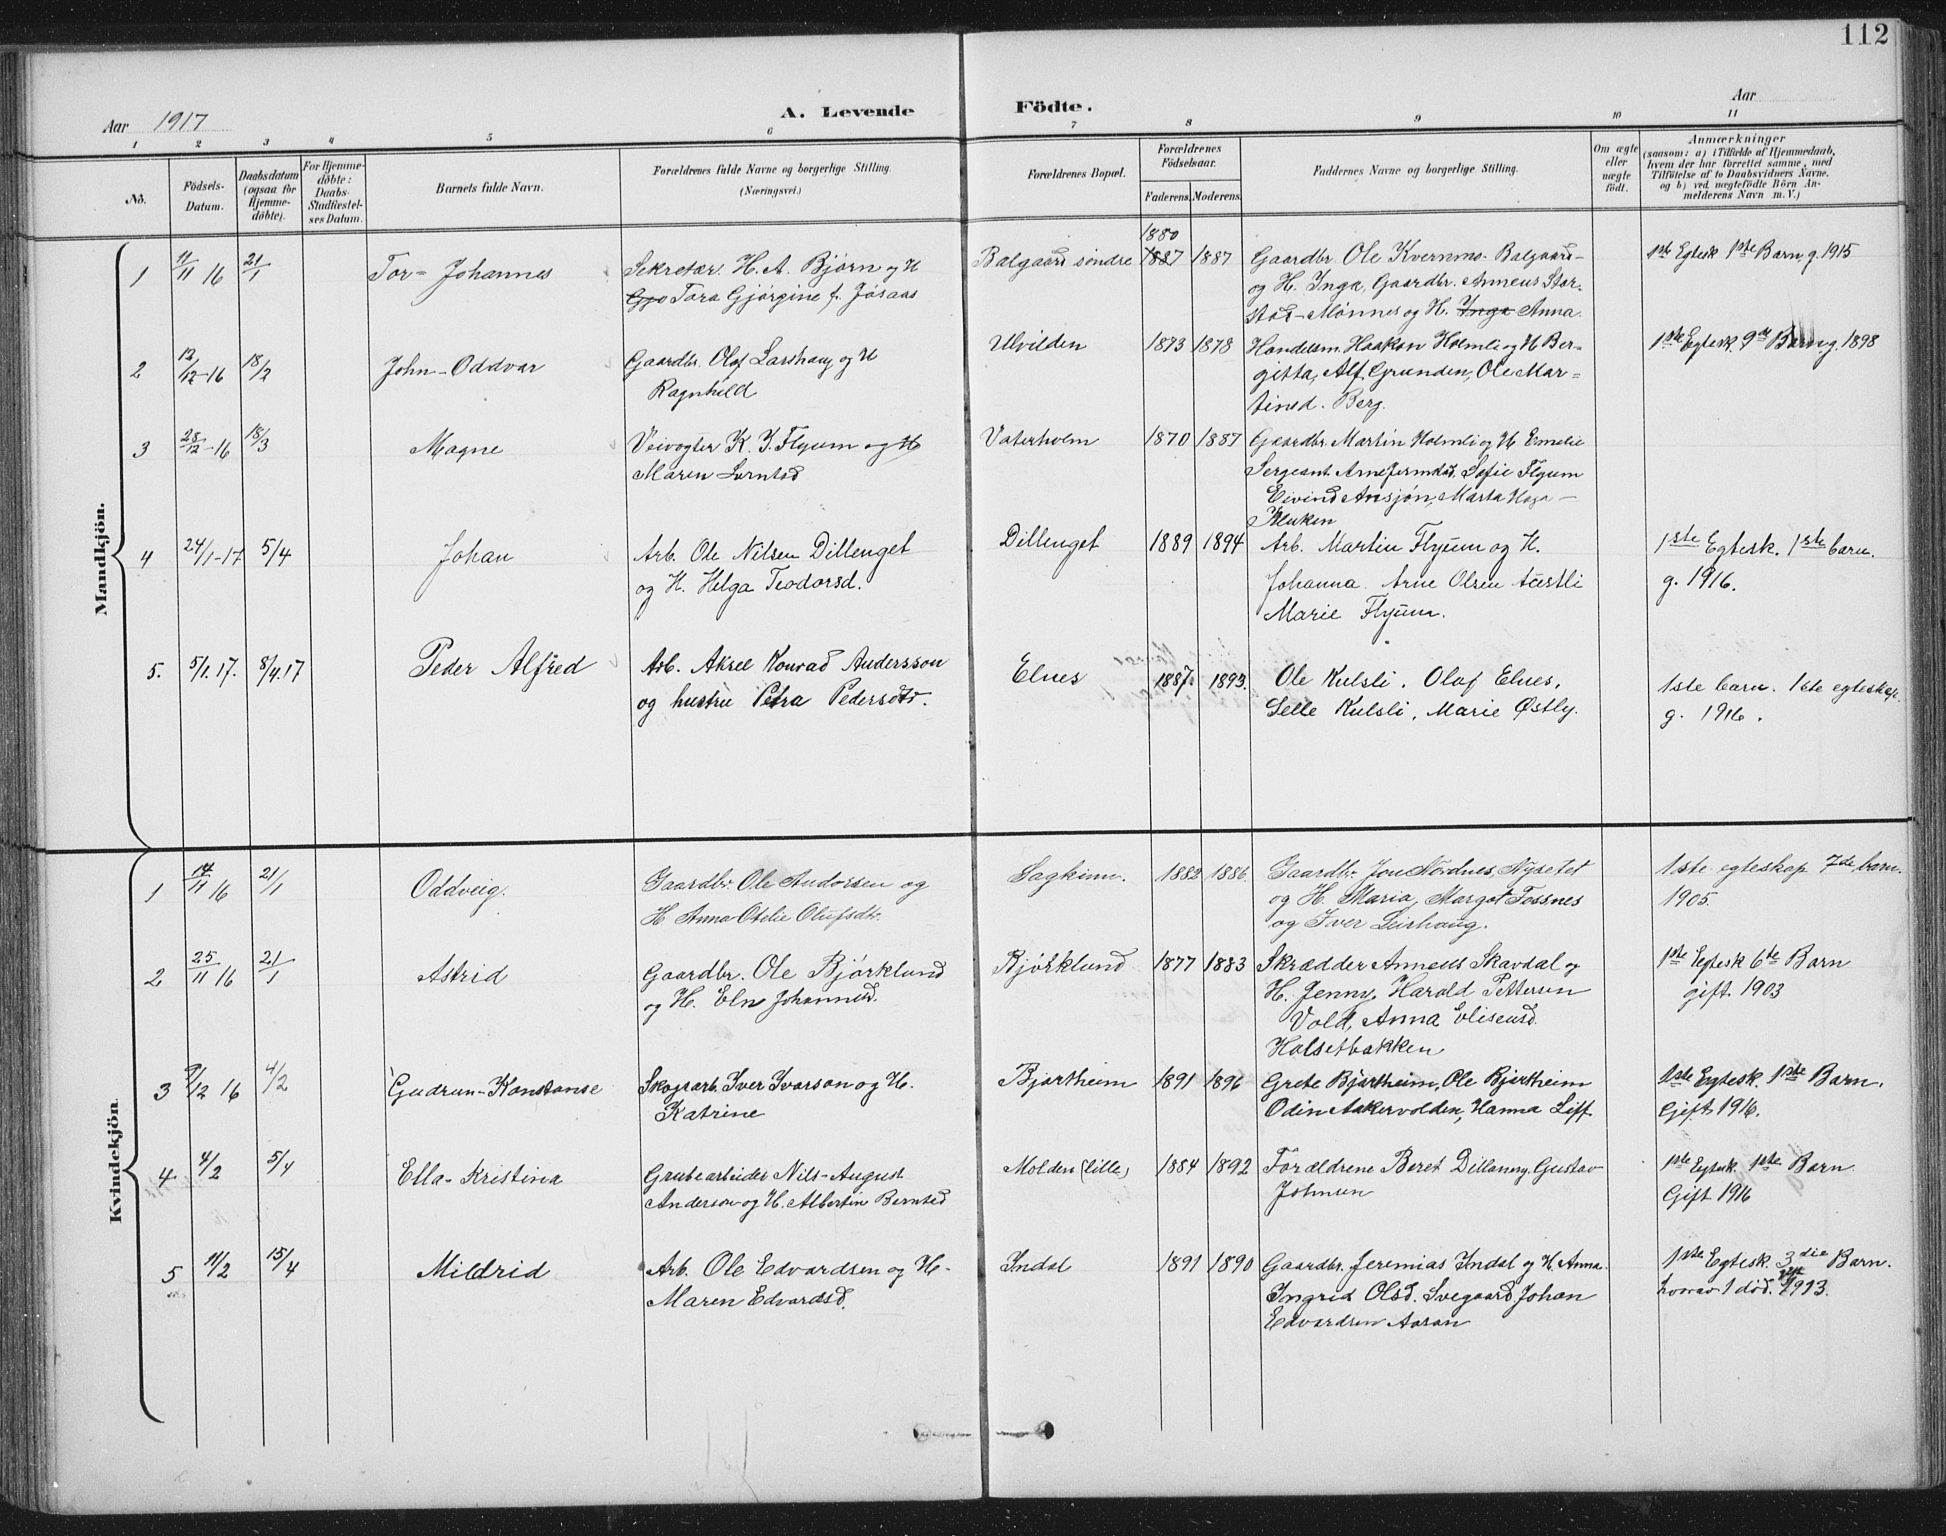 112
Aar 1917
A. Levende Födte.
Aar
1 2 3 4 5 6 7 8 9 10 11
No.
Födsels-Datum.
Daabsdatum (ogsaa for Hjemme-döbte).
For Hjemme-döbte: Daabs-Stadfæstel-ses Datum.
Barnets fulde Navn.
Forældrenes fulde Navne og borgerlige Stilling.
(Næringsvei.)
Forældrenes Bopæl.
Forældrenes Födselsaar.
Faderens. Moderens.
Faddernes Navne og borgerlige Stilling.
Om ægte eller uægte födt.
Anmærkninger
(saasom: a) i Tilfælde af Hjemmedaab,
hvem der har forrettet samme, med
Tilföielse af to Daabsvidners Navne.
og b) ved uægtefödte Börn An-
melderens Navn m. V.)
Mandkjön.
1 11/11 16 21/1 Tor-Johannes Sekretær H. A. Bjørn og H Balgaard söndre 1880 1887 1887 Gaardbr. Ole Kvernmo-Balgaard- 1ste Egtesk 1ste Barn g. 1915
Tora Gjørgine f. Jösaas og H. Inga, Gaardbr. Anneus Stor-
stad-Mønnes og H. Inga Anna.
2 12/12-16 18/2 John-Oddvar Gaardbr. Olof Larshaug og H Ulvilden 1873 1878 Handelsm. Haakon Holmli og H Ber- 1ste Egtesk. 9de Barn g. 1898
Ragnhild gitta, Alf Grunden, Ole Mar-
tinsd. Berg.
3 28/12-16 18/3 Magne Veivogter K. J. Flyum og H Vaterholm 1870 1887 Gaardbr. Martin Holmli og H Emelie
Maren Lorntsd Sergeant Arne Jermstad, Sofie Flyum
Eivind Ansjøn, Marta Haga-
Kluken
4 24/1-17 5/4 Johan Arb. Ole Nilsen Dillenget Dillenget 1889 1894 Arb. Martin Flyum og H. 1ste Egtesk. 1ste barn.
og H. Helga Teodorsd. Johanna. Arne Olsen Aüstli g. 1916.
Marie Flyum.
5. 5/1.17. 8/4.17 Peder Alfred Arb. Aksel Konrad Andersson Elnes 1887. 1893. Ole Kulsli, Olaf Elnes, 1ste barn. 1ste egteskap.
og hustru Petra Pedersdtr. Selle Kulsli, Marie Østly. g. 1916.
Kvindekjön.
1 14/11 16 21/1 Oddveig. Gaardbr. Ole Andorsen og Sagkinn. 1882 1886. Gaardbr. Jon Nordnes, Nysetet 1ste egteskap 7de barn.
H Anna Otelie Olufsdtr. og H. Maria, Margot Fossnes 1905.
og Iver Leirhaug.
2 25/11 16 21/1 Astrid Gaardbr. Ole Bjørklund Bjørklund 1877 1883 Skrædder Anneus Skavdal og 1ste Egtesk 6te Barn
og H. Eln Johannesd. H. Jenny, Harald Pettersen gift. 1903
Vold, Anna Eliseusd.
Halsetbakken
3 9/12 16 4/2 Gudrun-Konstanse Skogsarb. Iver Ivarson og H. Bjartheim 1891 1896 Grete Bjartheim, Ole Bjertheim 1ste Egtesk. 1ste Barn.
Katrine Odin Aakervolden, Hanna Liff. Gift 1916.
4 4/2 5/4 Ella-Kristina Grubearbeider Nils-August Molden (lille) 1884 1892 Forældrene Beret Dillanny, Gustav 1ste Egtesk 1ste Barn.
Anderson og H. Albertin Berntsd Johnsen Gift 1916
5 11/2 15/4 Mildrid Arb. Ole Edvardsen og H- Indal 1891 1890 Gaardbr. Jeremias Indal og H. Anna. 1ste Egtesk. 3die Barn.
Maren Edvardsd. Ingrid Olsd. Svegaard, Johan hvorav 1 död. 1913.
Edvardsen Aasan